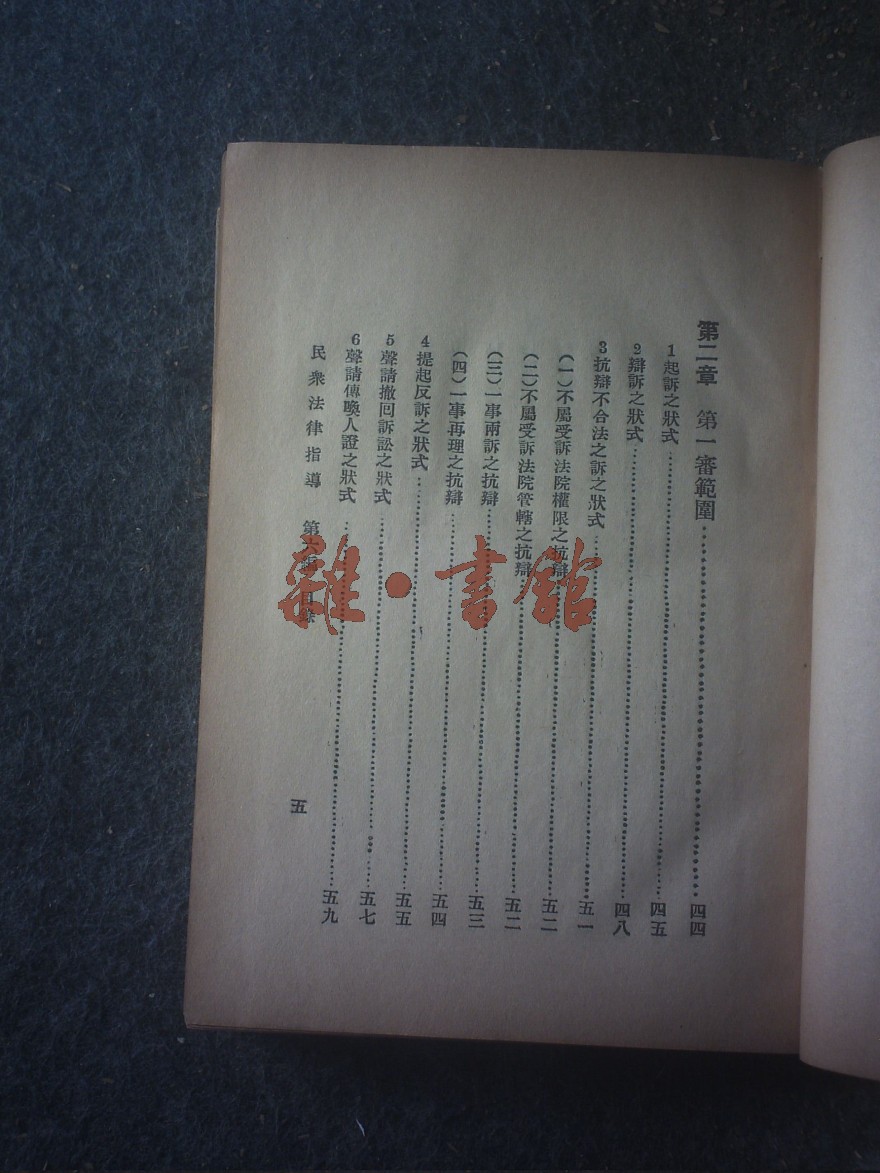 第二章 第一審範圍……四四
1起訴之狀式……四五
2辯訴之狀式……四八
3抗辯不合法之訴之狀式……五一
(一)不屬受訴法院權限之抗辯……五二
(二)不屬受訴法院管轄之抗辯……五二
(三)一事兩訴之抗辯……五三
(四)一事再理之抗辯……五四
4提起反訴之狀式……五五
5聲請撤回訴訟之狀式……五七
6聲請傳喚人證之狀式……五九
民衆法律指導 第六編 目錄 五
雜·書館